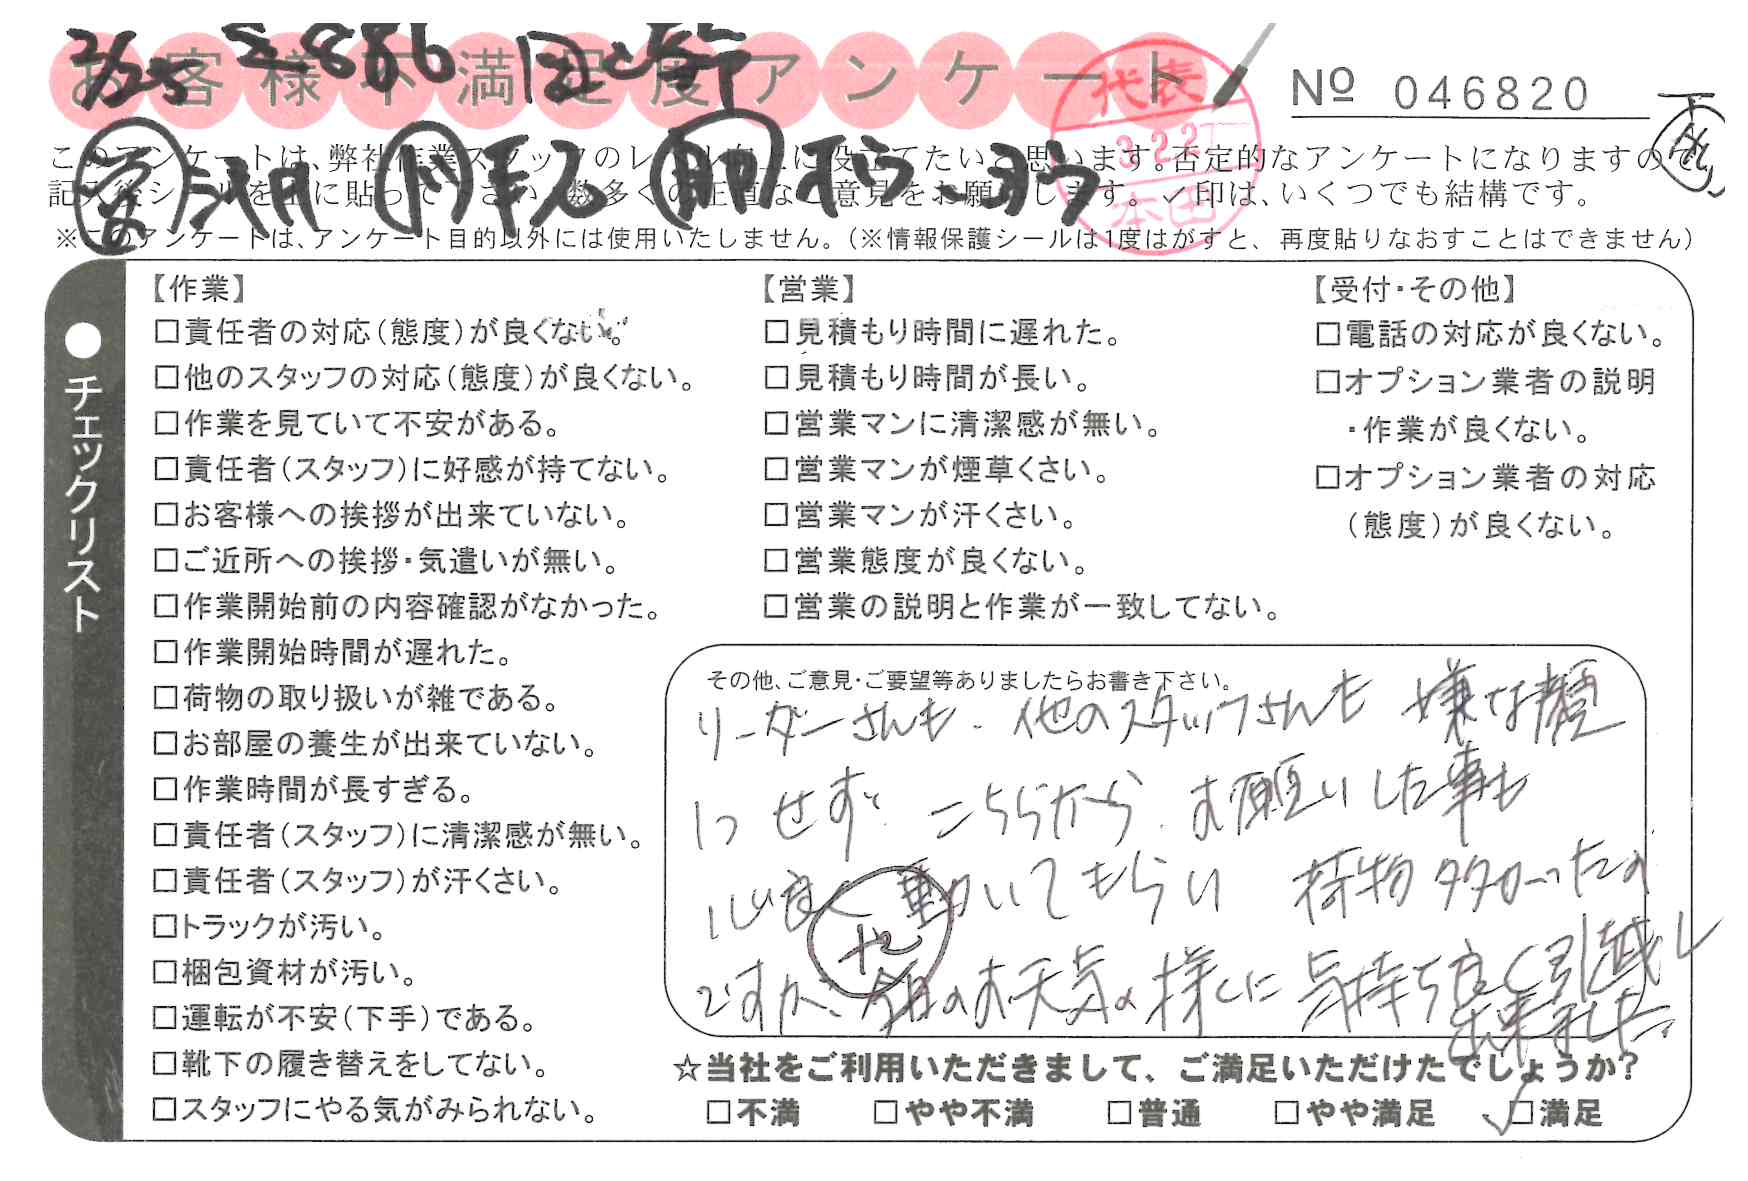 2/25
お客様不満足度アンケート
代表
3.2.27
本田
Nº 046820
このアンケートは、弊社作業スタッフのレベル向上に役立てたいと思います。否定的なアンケートになりますので
記入後シールを上に貼って下さい。数多くの正直なご意見をお願いします。✓印は、いくつでも結構です。
※このアンケートは、アンケート目的以外には使用いたしません。(※情報保護シールは1度はがすと、再度貼りなおすことはできません)
●チェックリスト
【作業】
□責任者の対応(態度)が良くない。
□他のスタッフの対応(態度)が良くない。
□作業を見ていて不安がある。
□責任者(スタッフ)に好感が持てない。
□お客様への挨拶が出来ていない。
□ご近所への挨拶・気遣いが無い。
□作業開始前の内容確認がなかった。
□作業開始時間が遅れた。
□荷物の取り扱いが雑である。
□お部屋の養生が出来ていない。
□作業時間が長すぎる。
□責任者(スタッフ)に清潔感が無い。
□責任者(スタッフ)が汗くさい。
□トラックが汚い。
□梱包資材が汚い。
□運転が不安(下手)である。
□靴下の履き替えをしてない。
□スタッフにやる気がみられない。
【営業】
□見積もり時間に遅れた。
□見積もり時間が長い。
□営業マンに清潔感が無い。
□営業マンが煙草くさい。
□営業マンが汗くさい。
□営業態度が良くない。
□営業の説明と作業が一致してない。
【受付・その他】
□電話の対応が良くない。
□オプション業者の説明
・作業が良くない。
□オプション業者の対応
(態度)が良くない。
その他、ご意見・ご要望等ありましたらお書き下さい。
リーダーさんも、他のスタッフさんも 嫌な顔
1つせず、こちらから、お願いした事も
心良く動いてもらい 荷物多かったの
ですが、今日のお天気の様に気持ち良く引越し
出来ました。
☆当社をご利用いただきまして、ご満足いただけたでしょうか?
□不満 □やや不満 □普通 □やや満足 ✓□満足